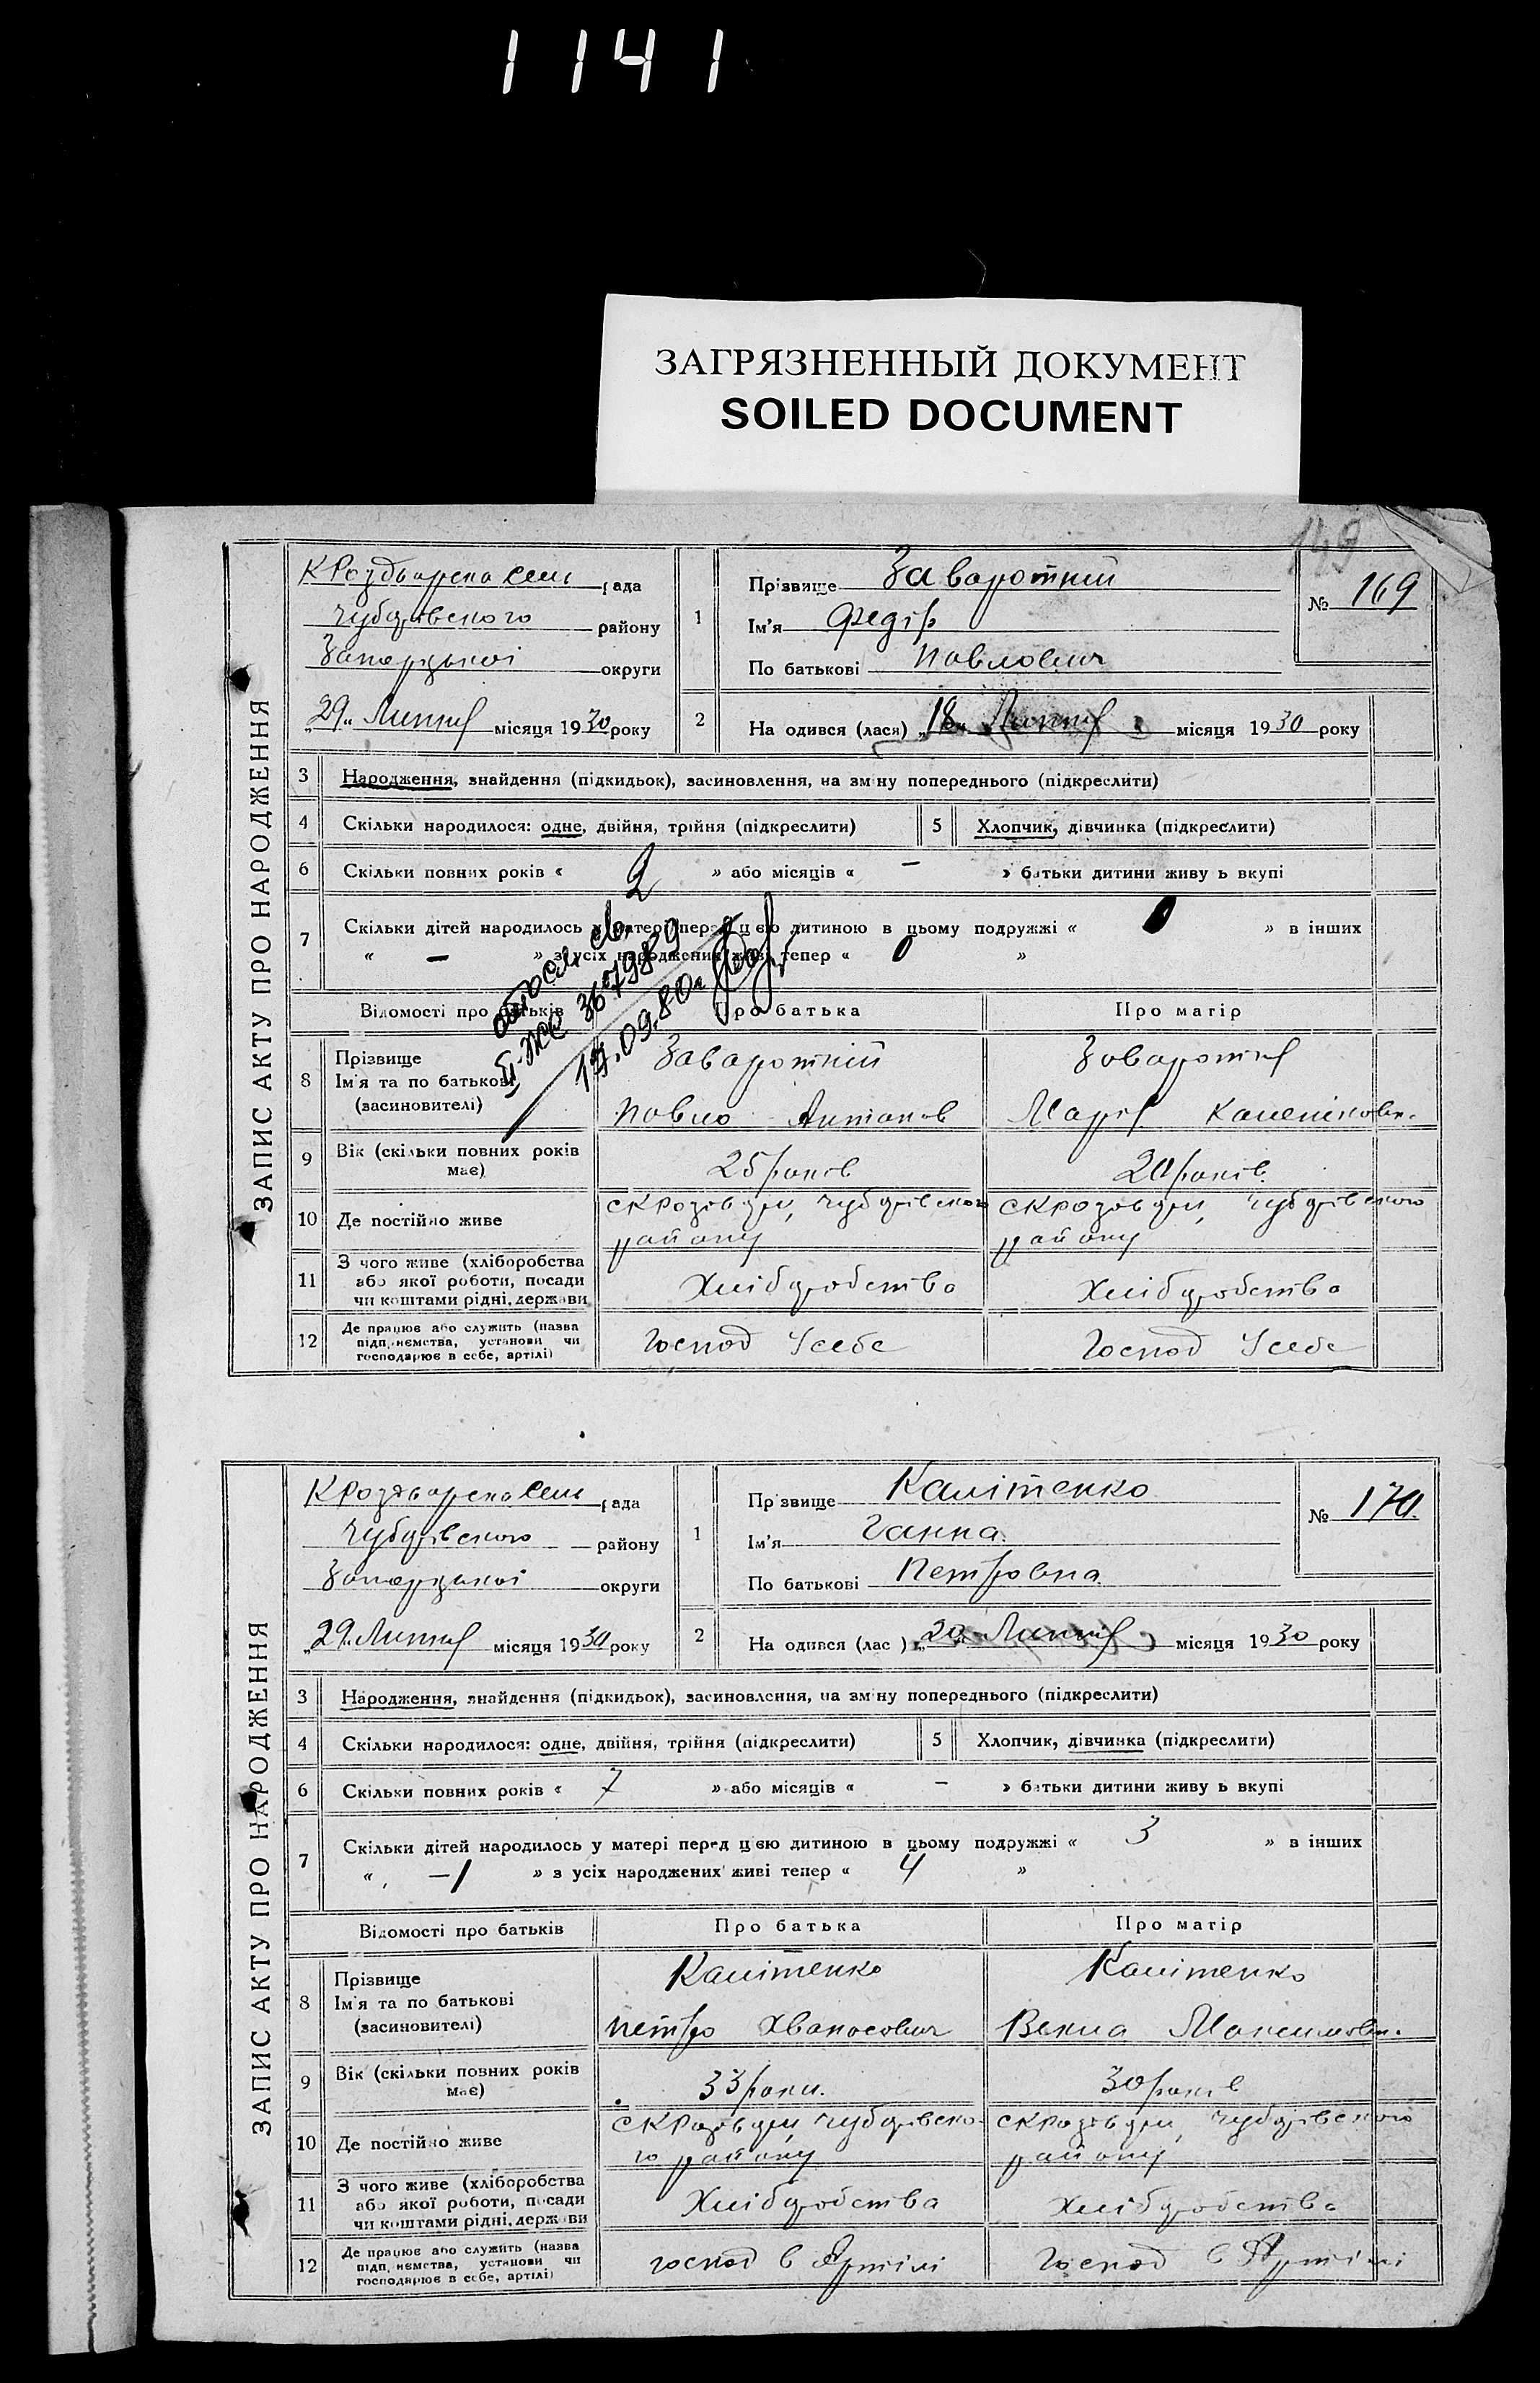 1141
ЗАГРЯЗНЕННЫЙ ДОКУМЕНТ
SOILED DOCUMENT
149
ЗАПИС АКТУ ПРО НАРОДЖЕННЯ
рада
району
округи
29 місяця 1930 року
1
Прізвище Заваротний
Ім'я Федір
По батькові Павлович
№ 169
2
На одився (лася) „18„ місяця 1930 року
3 Народження, знайдення (підкидьок), засиновлення, на зміну попереднього (підкреслити)
4 Скільки народилося: одне, двійня, трійня (підкреслити) 5 Хлопчик, дівчинка (підкреслити)
6 Скільки повних років « 2 » або місяців « — » батьки дитини живуть вкупі
7 Скільки дітей народилось у матері перед цією дитиною в цьому подружжі « 0 » в інших
« — » з усіх народжених живі тепер « 0 »
367989
09.80
Відомості про батьків Про батька Про матір
8 Прізвище
Ім'я та по батькові
(засиновителі)
Заваротний
Павло Антонов
Заваротня
Марія
9 Вік (скільки повних років має) 25 років 20 років
10 Де постійно живе
району району
11 З чого живе (хліборобства або якої роботи, посади чи коштами рідні, держави Хліборобство Хліборобство
12 Де працює або служить (назва підприємства, установи чи господарює в себе, артілі) Господ У себе Господ У себе
ЗАПИС АКТУ ПРО НАРОДЖЕННЯ
рада
району
округи
29 місяця 1930 року
1
Прізвище Калітенко
Ім'я Ганна
По батькові Петровна
№ 170
2
На одився (лас ) „20„ місяця 1930 року
3 Народження, знайдення (підкидьок), засиновлення, на зміну попереднього (підкреслити)
4 Скільки народилося: одне, двійня, трійня (підкреслити) 5 Хлопчик, дівчинка (підкреслити)
6 Скільки повних років « 7 » або місяців « — » батьки дитини живуть вкупі
7 Скільки дітей народилось у матері перед цією дитиною в цьому подружжі « 3 » в інших
« —1 » з усіх народжених живі тепер « 4 »
Відомості про батьків Про батька Про матір
8 Прізвище
Ім'я та по батькові
(засиновителі)
Калітенко
Петро Хванасович
Калітенко
Векла Максимовн.
9 Вік (скільки повних років має) 33 роки. 30 років
10 Де постійно живе
го району району
11 З чого живе (хліборобства або якої роботи, посади чи коштами рідні, держави Хліборобства Хліборобство
12 Де працює або служить (назва підприємства, установи чи господарює в себе, артілі) господ в Артілі Господ в Артілі